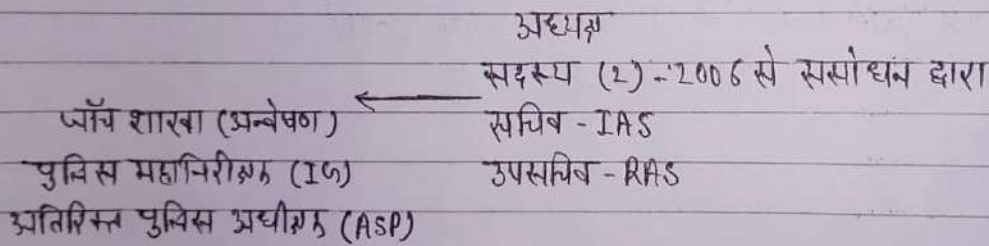 अध्यक्ष
सदस्य (2) - 2006 से ससोधन द्वारा
जाँच शाखा (अन्वेषण)
सचिव - IAS
पुलिस महानिरीक्षक (IG)
उपसचिव - RAS
अतिरिक्त पुलिस अधीक्षक (ASP)